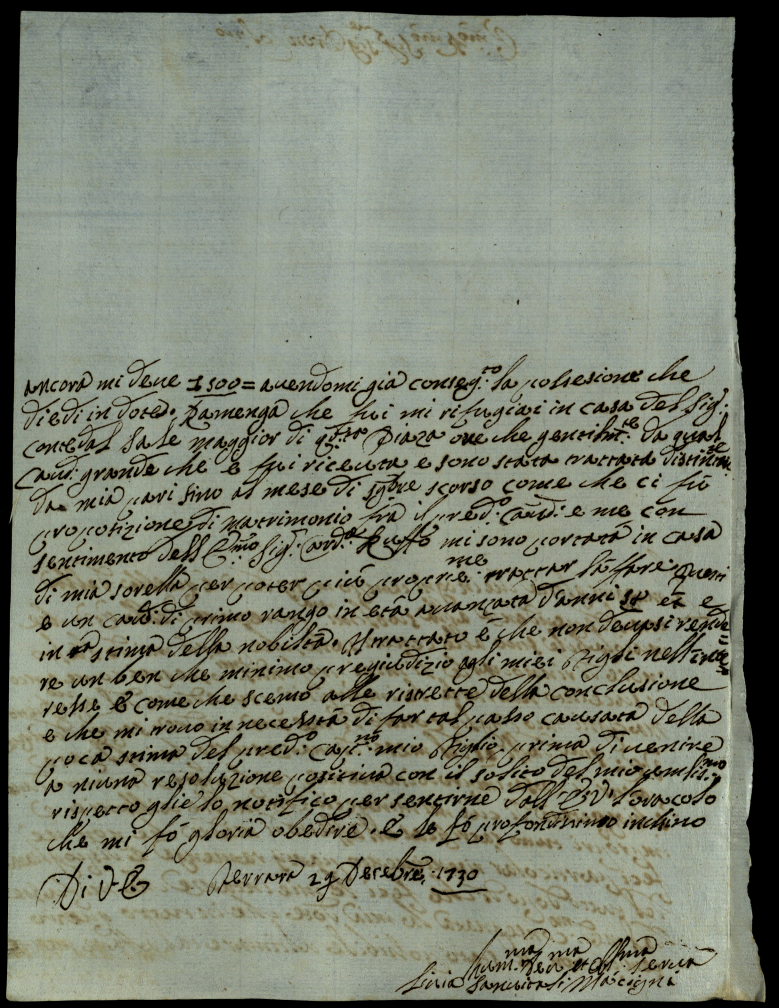 ancora mi deve 1500= avendomi già conseg.to la possesione che
diedi in dote. Damenga che fui mi rifugiai in casa del Sig.r
conte dal Sale maggior di q.sta Piaza ove che gentilm.te da qual
Cav.r grande che è fui riceuta e sono stata trattata distintam.te
da mia pari sino al mese di 9bre scorso come che ci fù
propositione di matrimonio frà il pred.o Cav.r e me con
sentimento dell E.mo Sig.r Card.le Ruffo mi sono portata in casa
di mia sorella per poter più propriam.e trattar l'affare questi
è un Cav.r di primo rango in età avanzata d'anni et è
in stima della nobiltà. Il trattato è che non deva si rende
re un ben che minimo pregiudizio agli miei figli nell'inte
resse e come che scemo alle ristrette della conclusione
e che mi trovo in necessità di far tal passo causata della
poca stima del pred.o Cap.no mio figlio prima di venire
a niuna resoluzione positiva con il solito del mio umilis.mo
rispetto glie lo notifico per sentirne dall' E.V. l'oracolo
che mi fò gloria obedire. e le fò profondissimo inchino
Di V.E. Ferrara 29 Decebre 1730
Hum.ma Dev.ma et Obl.ma Serva
Livia Sanvitali Macigni